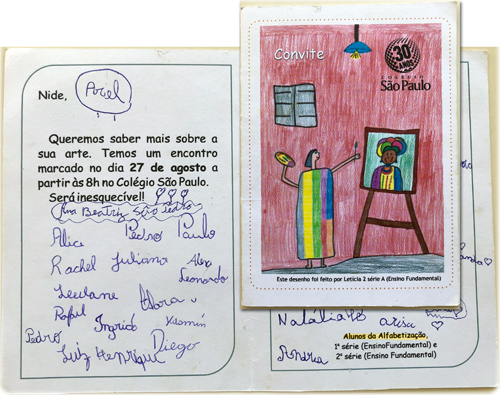 Nide,
Ariel
Queremos saber mais sobre a
sua arte. Temos um encontro
marcado no dia 27 de agosto a
partir às 8h no Colégio São Paulo.
Será inesquecível!
Ana Beatriz São Pedro
Alice Pedro Paulo
Rachel Juliana Alex
Leonardo
Rafael Ingrid Yasmin
Pedro
Luiz Henrique Diego
Convite
30
ANOS
COLÉGIO
São Paulo
Este desenho foi feito por Letícia 2 série A (Ensino Fundamental)
Andria
Alunos da Alfabetização,
1ª série (EnsinoFundamental) e
2ª série (Ensino Fundamental)